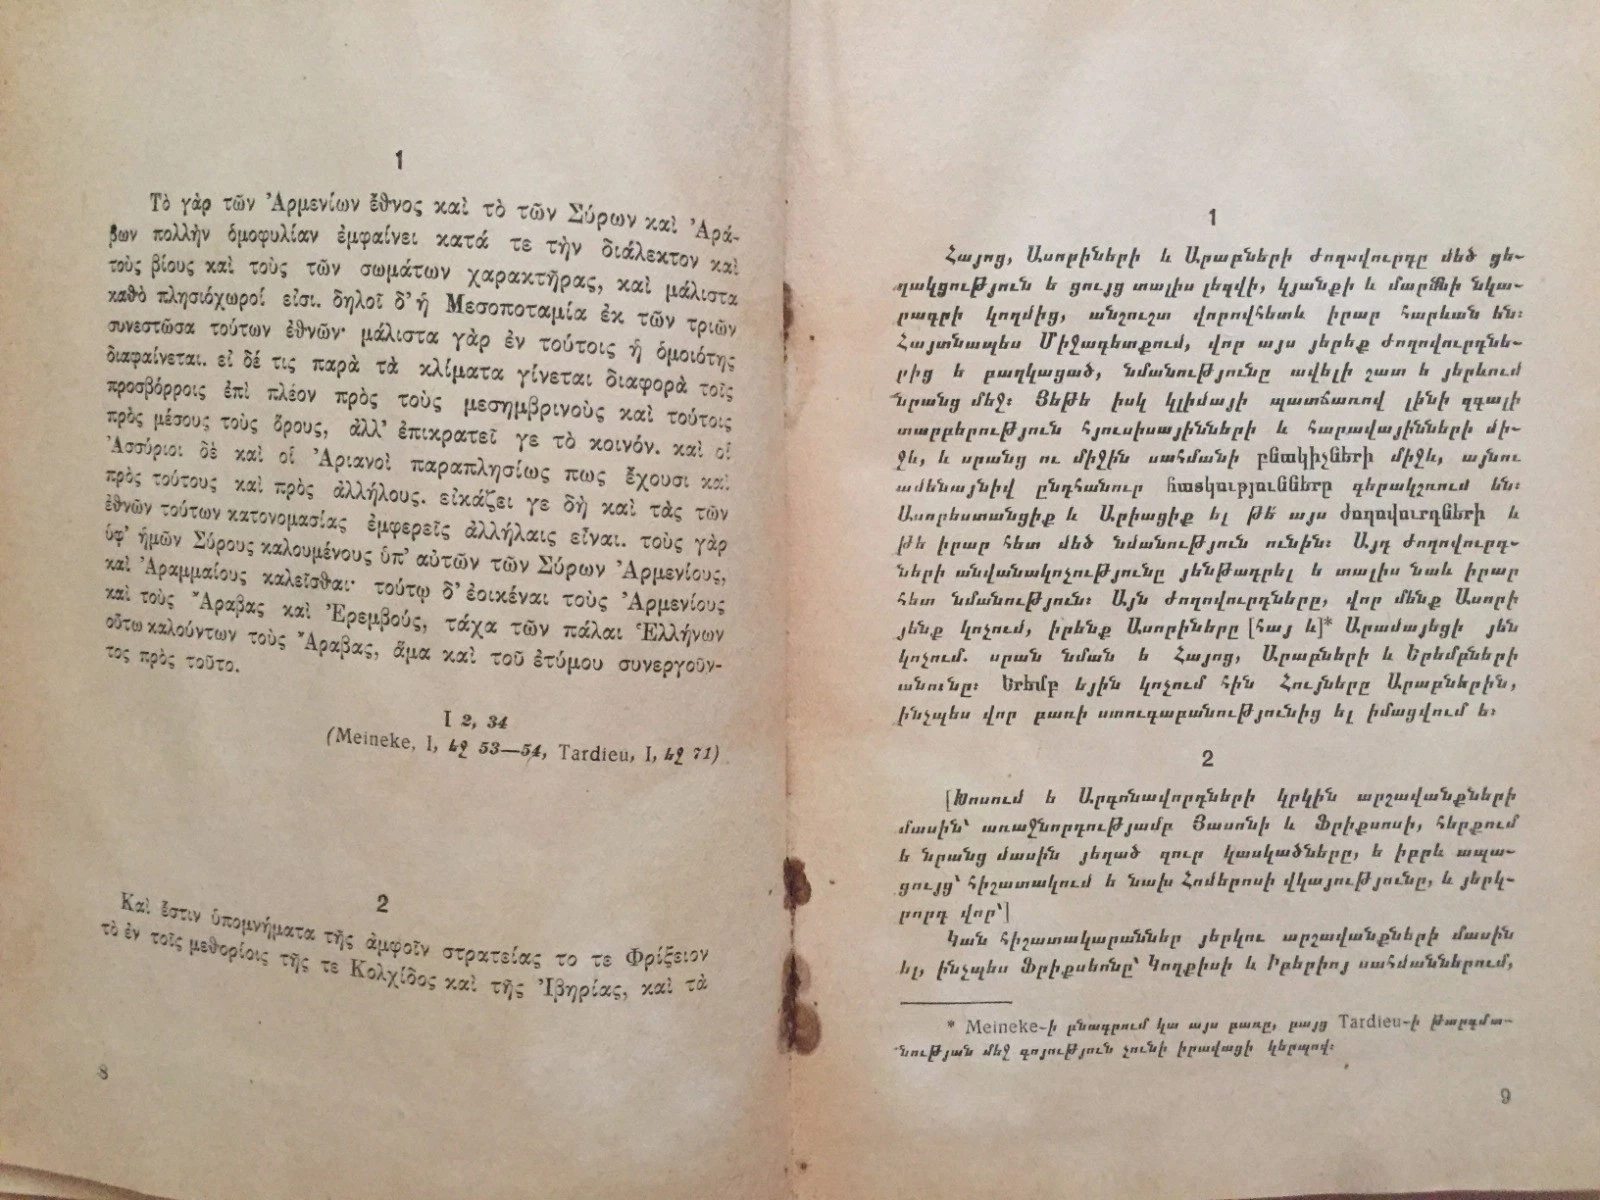 1
Τὸ γὰρ τῶν Ἀρμενίων ἔθνος καὶ τὸ τῶν Σύρων καὶ Ἀρά-
βων πολλὴν ὁμοφυλίαν ἐμφαίνει κατά τε τὴν διάλεκτον καὶ
τοὺς βίους καὶ τοὺς τῶν σωμάτων χαρακτῆρας, καὶ μάλιστα
καθὸ πλησιόχωροί εἰσι. δηλοῖ δ' ἡ Μεσοποταμία ἐκ τῶν τριῶν
συνεστῶσα τούτων ἐθνῶν· μάλιστα γὰρ ἐν τούτοις ἡ ὁμοιότης
διαφαίνεται. εἰ δέ τις παρὰ τὰ κλίματα γίνεται διαφορὰ τοῖς
προσβόρροις ἐπὶ πλέον πρὸς τοὺς μεσημβρινοὺς καὶ τούτοις
πρὸς μέσους τοὺς ὅρους, ἀλλ' ἐπικρατεῖ γε τὸ κοινόν. καὶ οἱ
Ἀσσύριοι δὲ καὶ οἱ Ἀριανοὶ παραπλησίως πως ἔχουσι καὶ
πρὸς τούτους καὶ πρὸς ἀλλήλους. εἰκάζει γε δὴ καὶ τὰς τῶν
ἐθνῶν τούτων κατονομασίας ἐμφερεῖς ἀλλήλαις εἶναι. τοὺς γὰρ
ὑφ' ἡμῶν Σύρους καλουμένους ὑπ' αὐτῶν τῶν Σύρων Ἀρμενίους,
καὶ Ἀραμμαίους καλεῖσθαι· τούτῳ δ' ἐοικέναι τοὺς Ἀρμενίους
καὶ τοὺς Ἄραβας καὶ Ἐρεμβούς, τάχα τῶν πάλαι Ἑλλήνων
οὕτω καλούντων τοὺς Ἄραβας, ἅμα καὶ τοῦ ἐτύμου συνεργοῦν-
τος πρὸς τοῦτο.
I 2, 34
(Meineke, I, եջ 53—54, Tardieu, I, եջ 71)
2
Καὶ ἔστιν ὑπομνήματα τῆς ἀμφοῖν στρατείας το τε Φρίξειον
τὸ ἐν τοῖς μεθορίοις τῆς τε Κολχίδος καὶ τῆς Ἰβηρίας, καὶ τὰ
8
1
Հայոց, Ասորիների և Արաբների ժողովուրդը մեծ ցե-
ղակցություն է ցույց տալիս լեզվի, կյանքի և մարմնի նկա-
րագրի կողմից, անշուշտ վորովհետև իրար հարևան են։
Հայտնապես Միջագետքում, վոր այս յերեք ժողովուրդնե-
րից է բաղկացած, նմանությունը ավելի շատ է յերևում
նրանց մեջ։ Յեթե իսկ կլիմայի պատճառով լինի զգալի
տարբերություն հյուսիսայինների և հարավայինների մի-
ջև, և սրանց ու միջին սահմանի բնակիչների միջև, այնու
ամենայնիվ ընդհանուր հատկությունները գերակշռում են։
Ասորեստանցիք և Արիացիք ել թե՛ այս ժողովուրդների և
թե իրար հետ մեծ նմանություն ունին։ Այդ ժողովուրդ-
ների անվանակոչությունը յենթադրել է տալիս նաև իրար
հետ նմանություն։ Այն ժողովուրդները, վոր մենք Ասորի
յենք կոչում, իրենք Ասորիները [հայ և]* Արամայեցի յեն
կոչում. սրան նման է Հայոց, Արաբների և Երեմբների
անունը։ Երեմբ եյին կոչում հին Հույները Արաբներին,
ինչպես վոր բառի ստուգաբանությունից ել իմացվում է։
2
[Խոսում է Արգոնավորդների կրկին արշավանքների
մասին՝ առաջնորդությամբ Յասոնի և Ֆրիքսոսի, հերքում
է նրանց մասին յեղած զուր կասկածները, և իբրև ապա-
ցույց՝ հիշատակում է նախ Հոմերոսի վկայությունը, և յերկ-
րորդ վոր՝]
Կան հիշատակարաններ յերկու արշավանքների մասին
ել, ինչպես Ֆրիքսեոնը՝ Կողքիսի և Իբերիոյ սահմաններում,
* Meineke-ի բնագրում կա այս բառը, բայց Tardieu-ի թարգմա-
նության մեջ գոյություն չունի իրավացի կերպով։
9